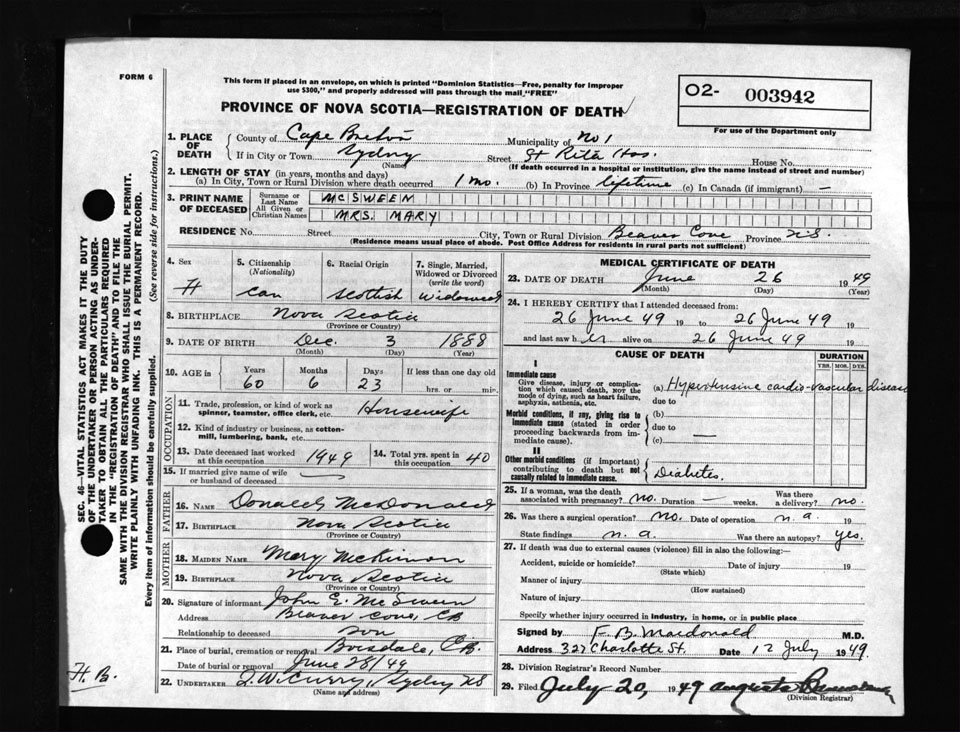 FORM 6
This form if placed in an envelope, on which is printed "Dominion Statistics—Free, penalty for improper
use $300," and properly addressed will pass through the mail "FREE"
PROVINCE OF NOVA SCOTIA—REGISTRATION OF DEATH
O2- 003942
For use of the Department only
1. PLACE OF DEATH
County of Cape Breton Municipality of No 1
If in City or Town Sydney Street St Rita Hos. House No.
(Name) (If death occurred in a hospital or institution, give the name instead of street and number)
2. LENGTH OF STAY (in years, months and days)
(a) In City, Town or Rural Division where death occurred 1 mo. (b) In Province lifetime (c) In Canada (if immigrant) —
3. PRINT NAME OF DECEASED
Surname or Last Name McSWEEN
All Given or Christian Names MRS. MARY
RESIDENCE No. Street City, Town or Rural Division Beaver Cove Province N.S.
(Residence means usual place of abode. Post Office Address for residents in rural parts not sufficient)
4. Sex
F
5. Citizenship (Nationality)
Can
6. Racial Origin
Scottish
7. Single, Married, Widowed or Divorced (write the word)
Widowed
8. BIRTHPLACE Nova Scotia
(Province or Country)
9. DATE OF BIRTH Dec. 3 1888
(Month) (Day) (Year)
10. AGE in Years Months Days If less than one day old
60 6 23 hrs. or min.
OCCUPATION
11. Trade, profession, or kind of work as
spinner, teamster, office clerk, etc. Housewife
12. Kind of industry or business, as cotton-
mill, lumbering, bank, etc.
13. Date deceased last worked
at this occupation 1949
14. Total yrs. spent in
this occupation 40
15. If married give name of wife
or husband of deceased
FATHER
16. NAME Donald McDonald
17. BIRTHPLACE Nova Scotia
(Province or Country)
MOTHER
18. MAIDEN NAME Mary McKinnon
19. BIRTHPLACE Nova Scotia
(Province or Country)
20. Signature of informant John E. McSween
Address Beaver Cove, CB
Relationship to deceased son
21. Place of burial, cremation or removal Boisdale, C.B.
Date of burial or removal June 28/49
22. UNDERTAKER J.W. Curry, Sydney NS
(Name and address)
H.B.
MEDICAL CERTIFICATE OF DEATH
23. DATE OF DEATH June 26 1949
(Month) (Day) (Year)
24. I HEREBY CERTIFY that I attended deceased from:
26 June 49 19 to 26 June 49 19
and last saw h er alive on 26 June 49 19
CAUSE OF DEATH
DURATION
YRS. MOS. DYS.
I
Immediate cause
Give disease, injury or complica-
tion which caused death, NOT the
mode of dying, such as heart failure,
asphyxia, asthenia, etc.
(a) Hypertensive cardio-vascular disease
due to
Morbid conditions, if any, giving rise to
immediate cause (stated in order
proceeding backwards from im-
mediate cause).
(b)
due to —
(c)
II
Other morbid conditions (if important)
contributing to death but not
causally related to immediate cause.
Diabetes
25. If a woman, was the death
associated with pregnancy? no. Duration — weeks. Was there
a delivery? no.
26. Was there a surgical operation? no. Date of operation n.a. 19
State findings n.a. Was there an autopsy? yes.
27. If death was due to external causes (violence) fill in also the following:—
Accident, suicide or homicide? Date of injury 19
(State which)
Manner of injury
(How sustained)
Nature of injury
Specify whether injury occurred in industry, in home, or in public place
Signed by F. B. Macdonald M.D.
Address 327 Charlotte St. Date 12 July 1949.
28. Division Registrar's Record Number
29. Filed July 20, 1949 Augusta
(Division Registrar)
SEC. 46—VITAL STATISTICS ACT MAKES IT THE DUTY
OF THE UNDERTAKER OR PERSON ACTING AS UNDER-
TAKER TO OBTAIN ALL THE PARTICULARS REQUIRED
IN THE "REGISTRATION OF DEATH" AND TO FILE THE
SAME WITH THE DIVISION REGISTRAR WHO SHALL ISSUE THE BURIAL PERMIT.
WRITE PLAINLY WITH UNFADING INK. THIS IS A PERMANENT RECORD.
Every item of information should be carefully supplied. (See reverse side for instructions.)